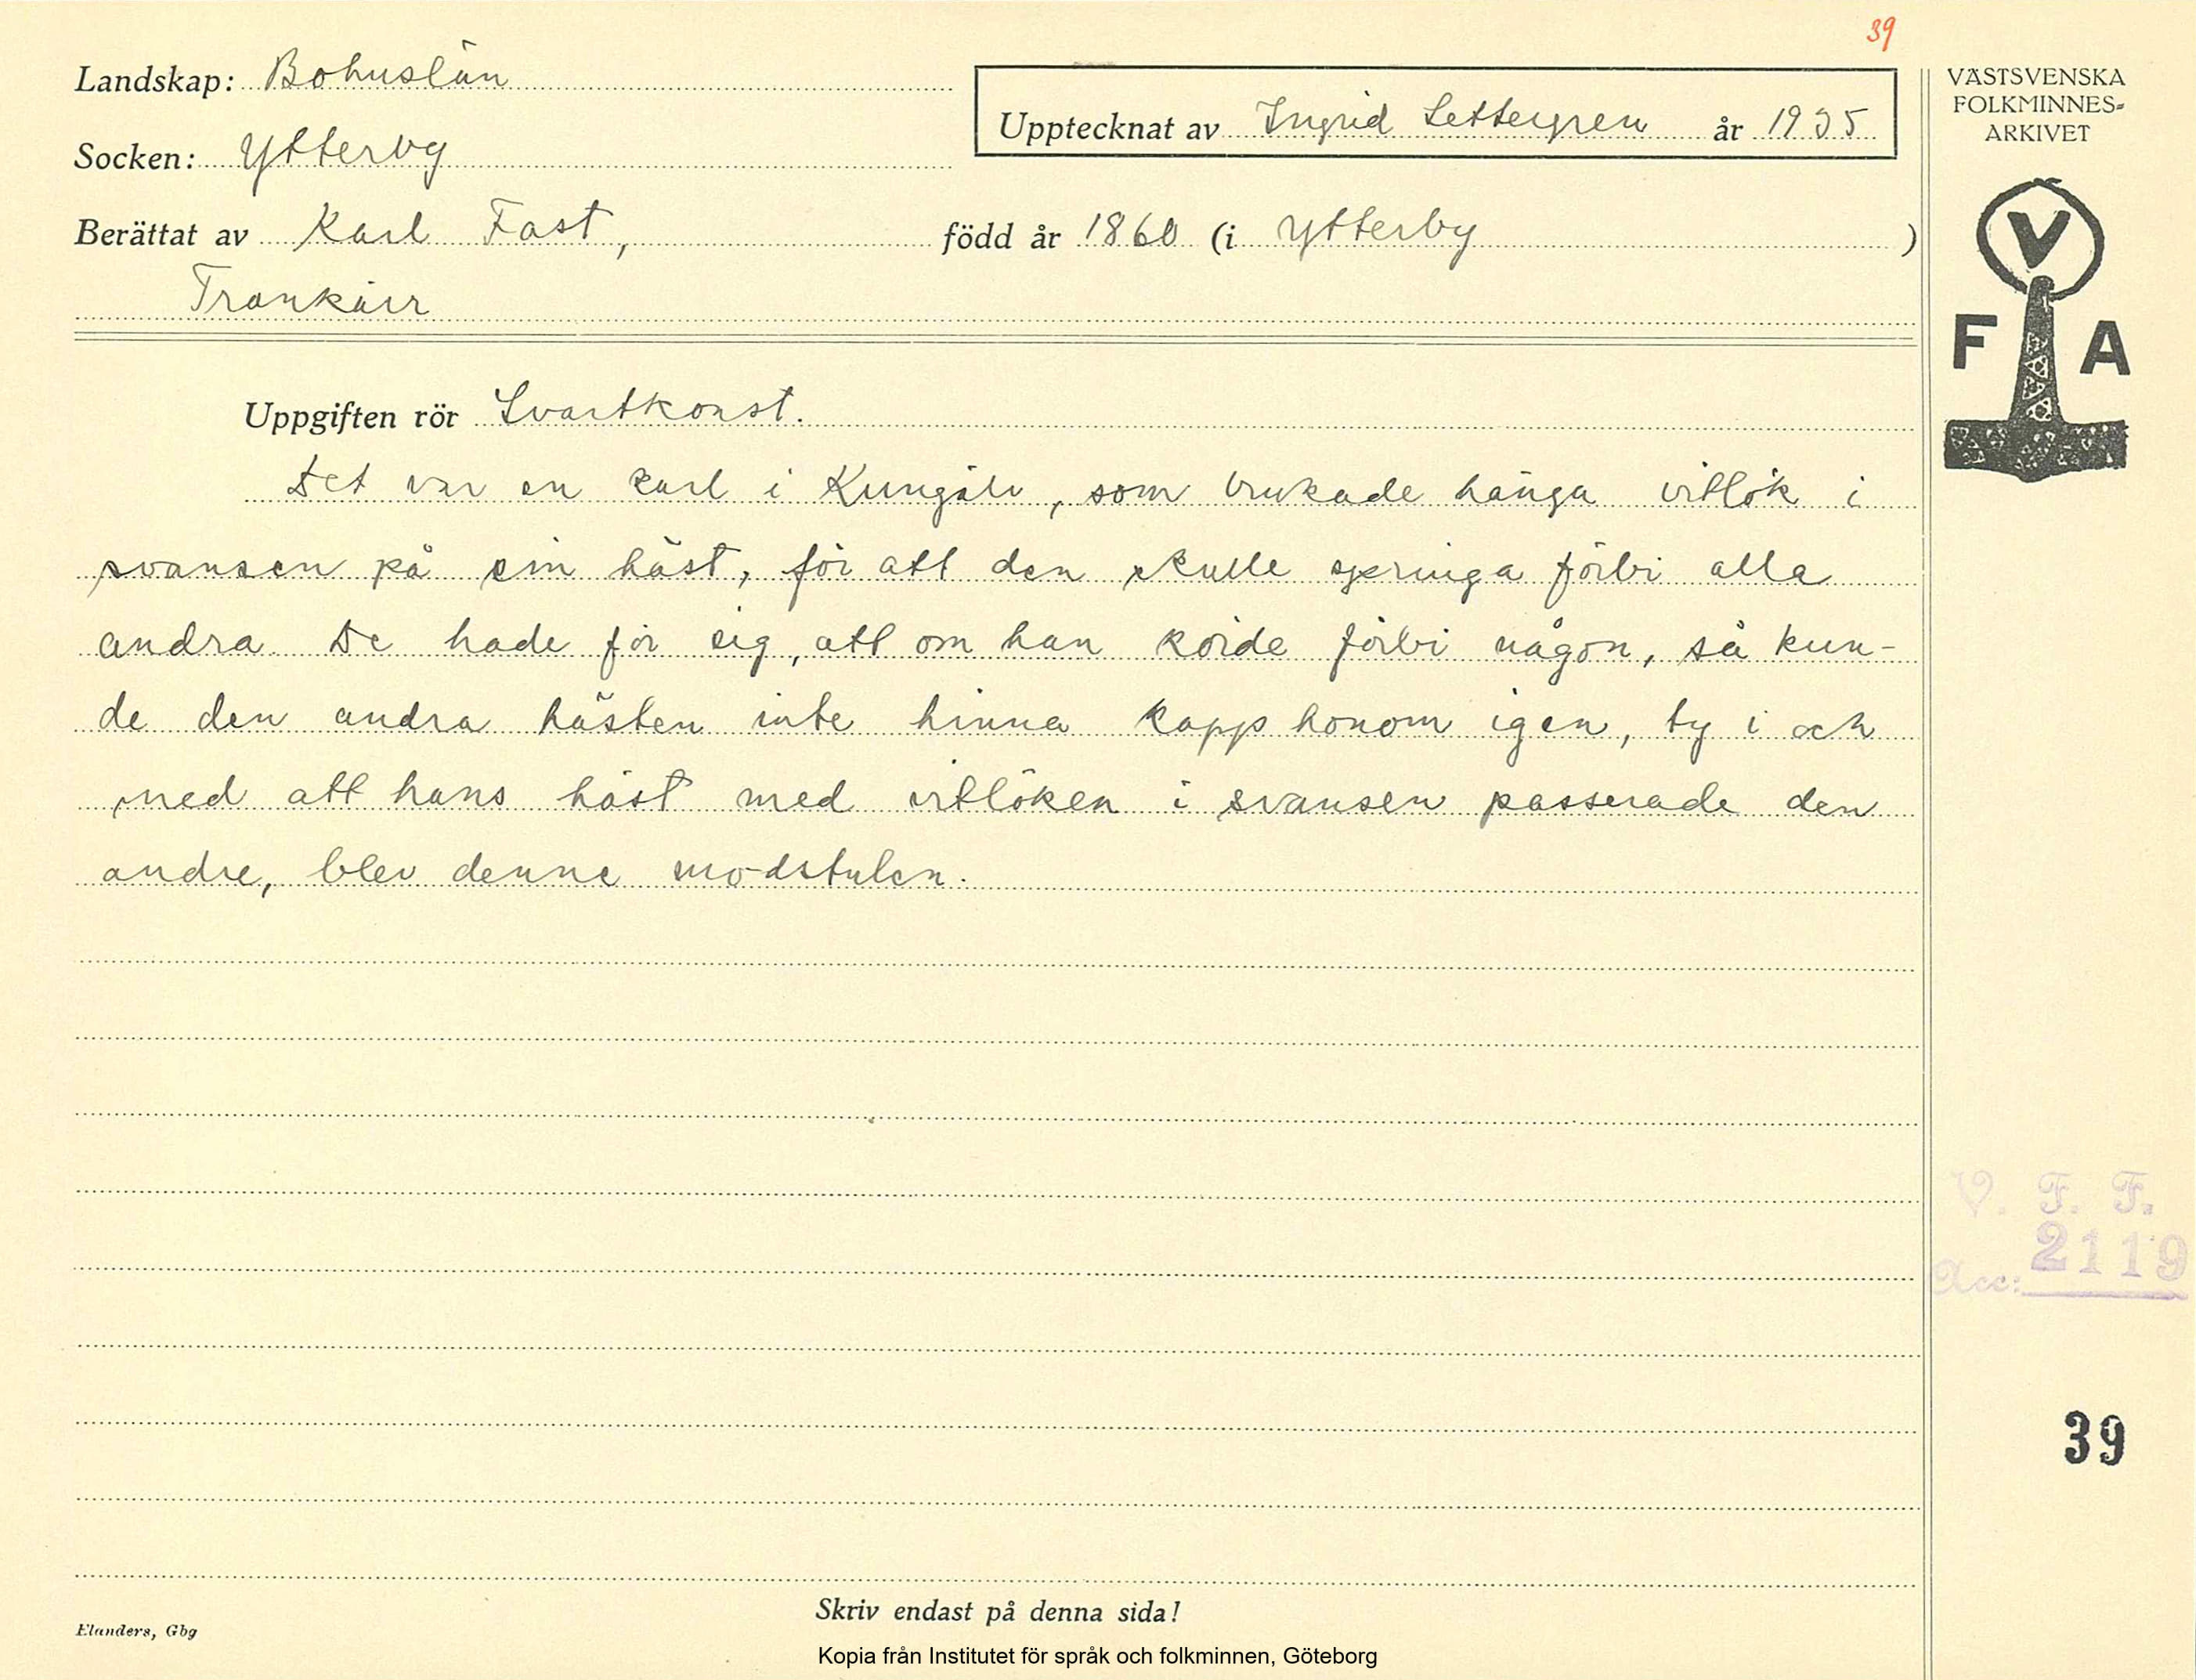 39
Landskap: Bohuslän
Upptecknat av Ingrid Settergren år 1935
Socken: Ytterby
Berättat av Karl Fast, född år 1860 (i Ytterby )
Trankärr
VÄSTSVENSKA
FOLKMINNES-
ARKIVET
V
F A
Uppgiften rör Svartkonst.
Det var en karl i Kungälv, som brukade hänga vitlök i
svansen på sin häst, för att den skulle springa förbi alla
andra. De hade för sig, att om han körde förbi någon, så kun-
de den andra hästen inte hinna kapp honom igen, ty i och
med att hans häst med vitlöken i svansen passerade den
andre, blev denne modstulen.
V. F. F.
Acc: 2119
39
Skriv endast på denna sida!
Elanders, Gbg
Kopia från Institutet för språk och folkminnen, Göteborg